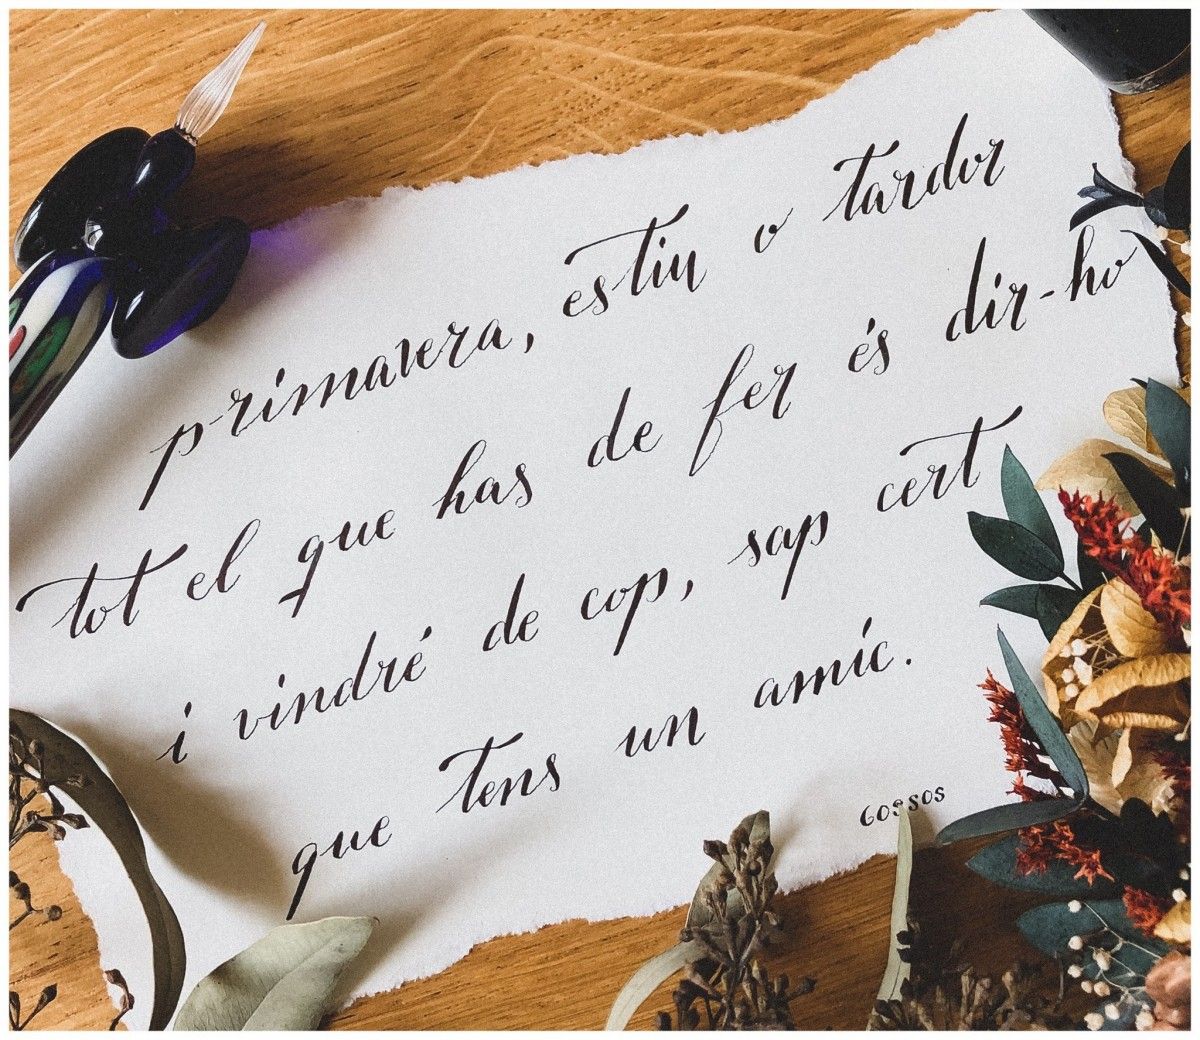 primavera, estiu o tardor
tot el que has de fer és dir-ho
i vindré de cop, sap cert
que tens un amic.
GOSSOS